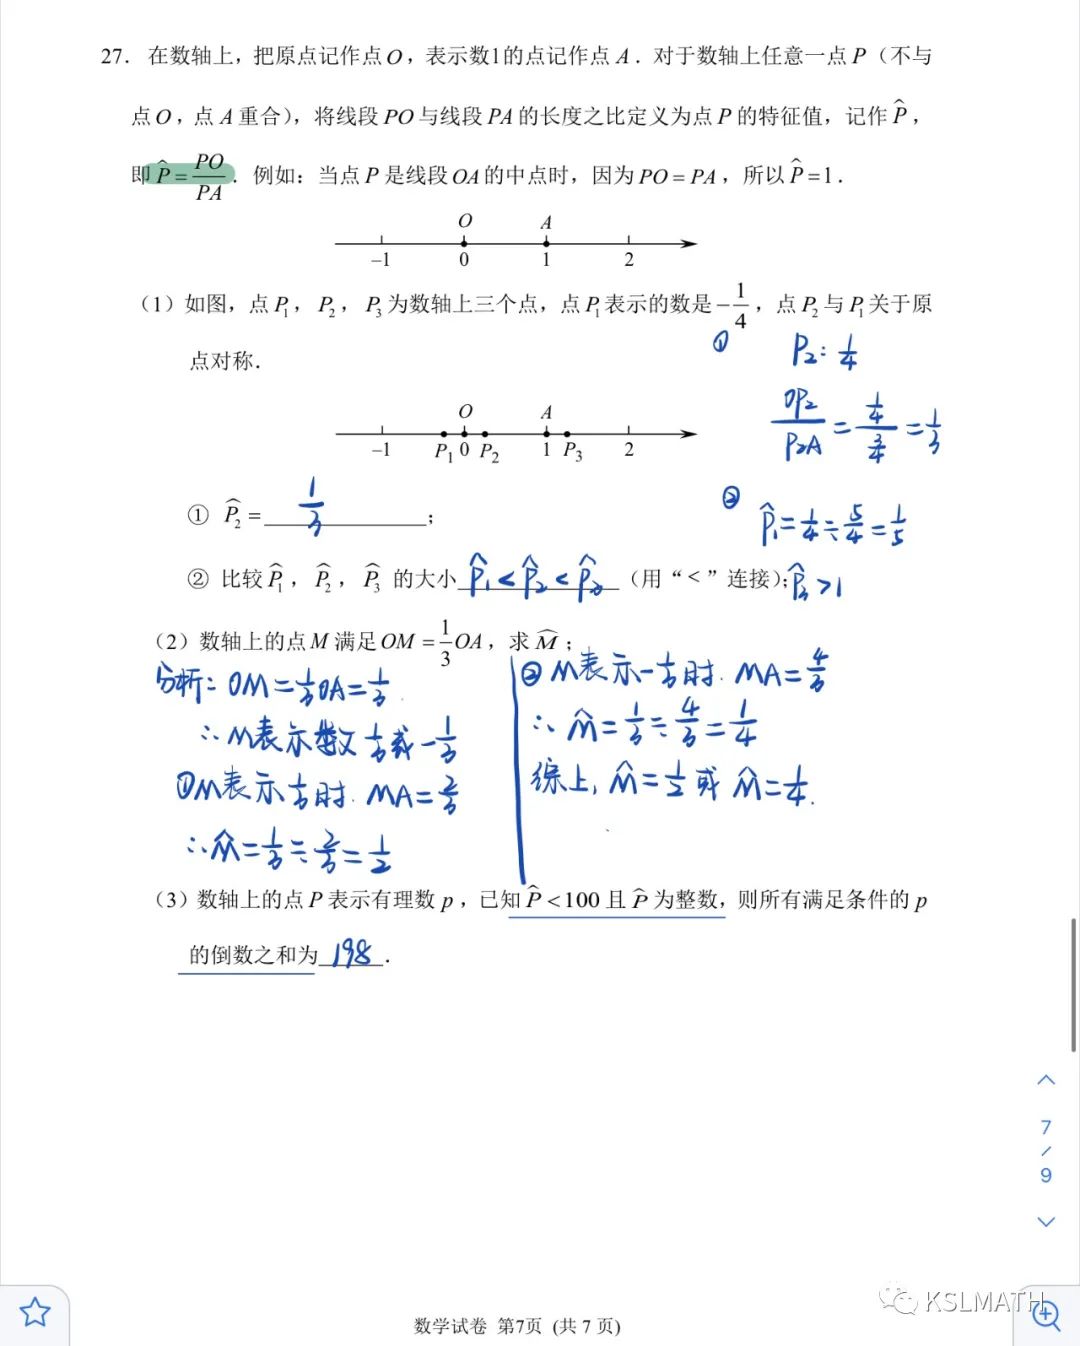 27. 在数轴上，把原点记作点O，表示数1的点记作点A．对于数轴上任意一点P（不与
点O，点A重合），将线段PO与线段PA的长度之比定义为点P的特征值，记作P̂，
即P̂=PO/PA．例如：当点P是线段OA的中点时，因为PO=PA，所以P̂=1．
O A
-1 0 1 2
（1）如图，点P₁，P₂，P₃为数轴上三个点，点P₁表示的数是-1/4，点P₂与P₁关于原
点对称．
① P₂: 1/4
OP₂/P₂A = (1/4)/(3/4) = 1/3
O A
-1 P₁ 0 P₂ 1 P₃ 2
① P̂₂= 1/3 ；
② P̂₁=1/4÷5/4=1/5
② 比较P̂₁，P̂₂，P̂₃的大小 P̂₁<P̂₂<P̂₃ （用“<”连接）；
P̂₃>1
（2）数轴上的点M满足OM=1/3OA，求M̂；
分析：OM=1/3OA=1/3.
∴M表示数1/3或-1/3
①M表示1/3时. MA=2/3
∴M̂=1/3÷2/3=1/2
②M表示-1/3时. MA=4/3
∴M̂=1/3÷4/3=1/4
综上，M̂=1/2或M̂=1/4.
（3）数轴上的点P表示有理数p，已知P̂<100且P̂为整数，则所有满足条件的p
的倒数之和为 198 ．
7
/
9
KSLMATH
数学试卷 第7页 (共7页)